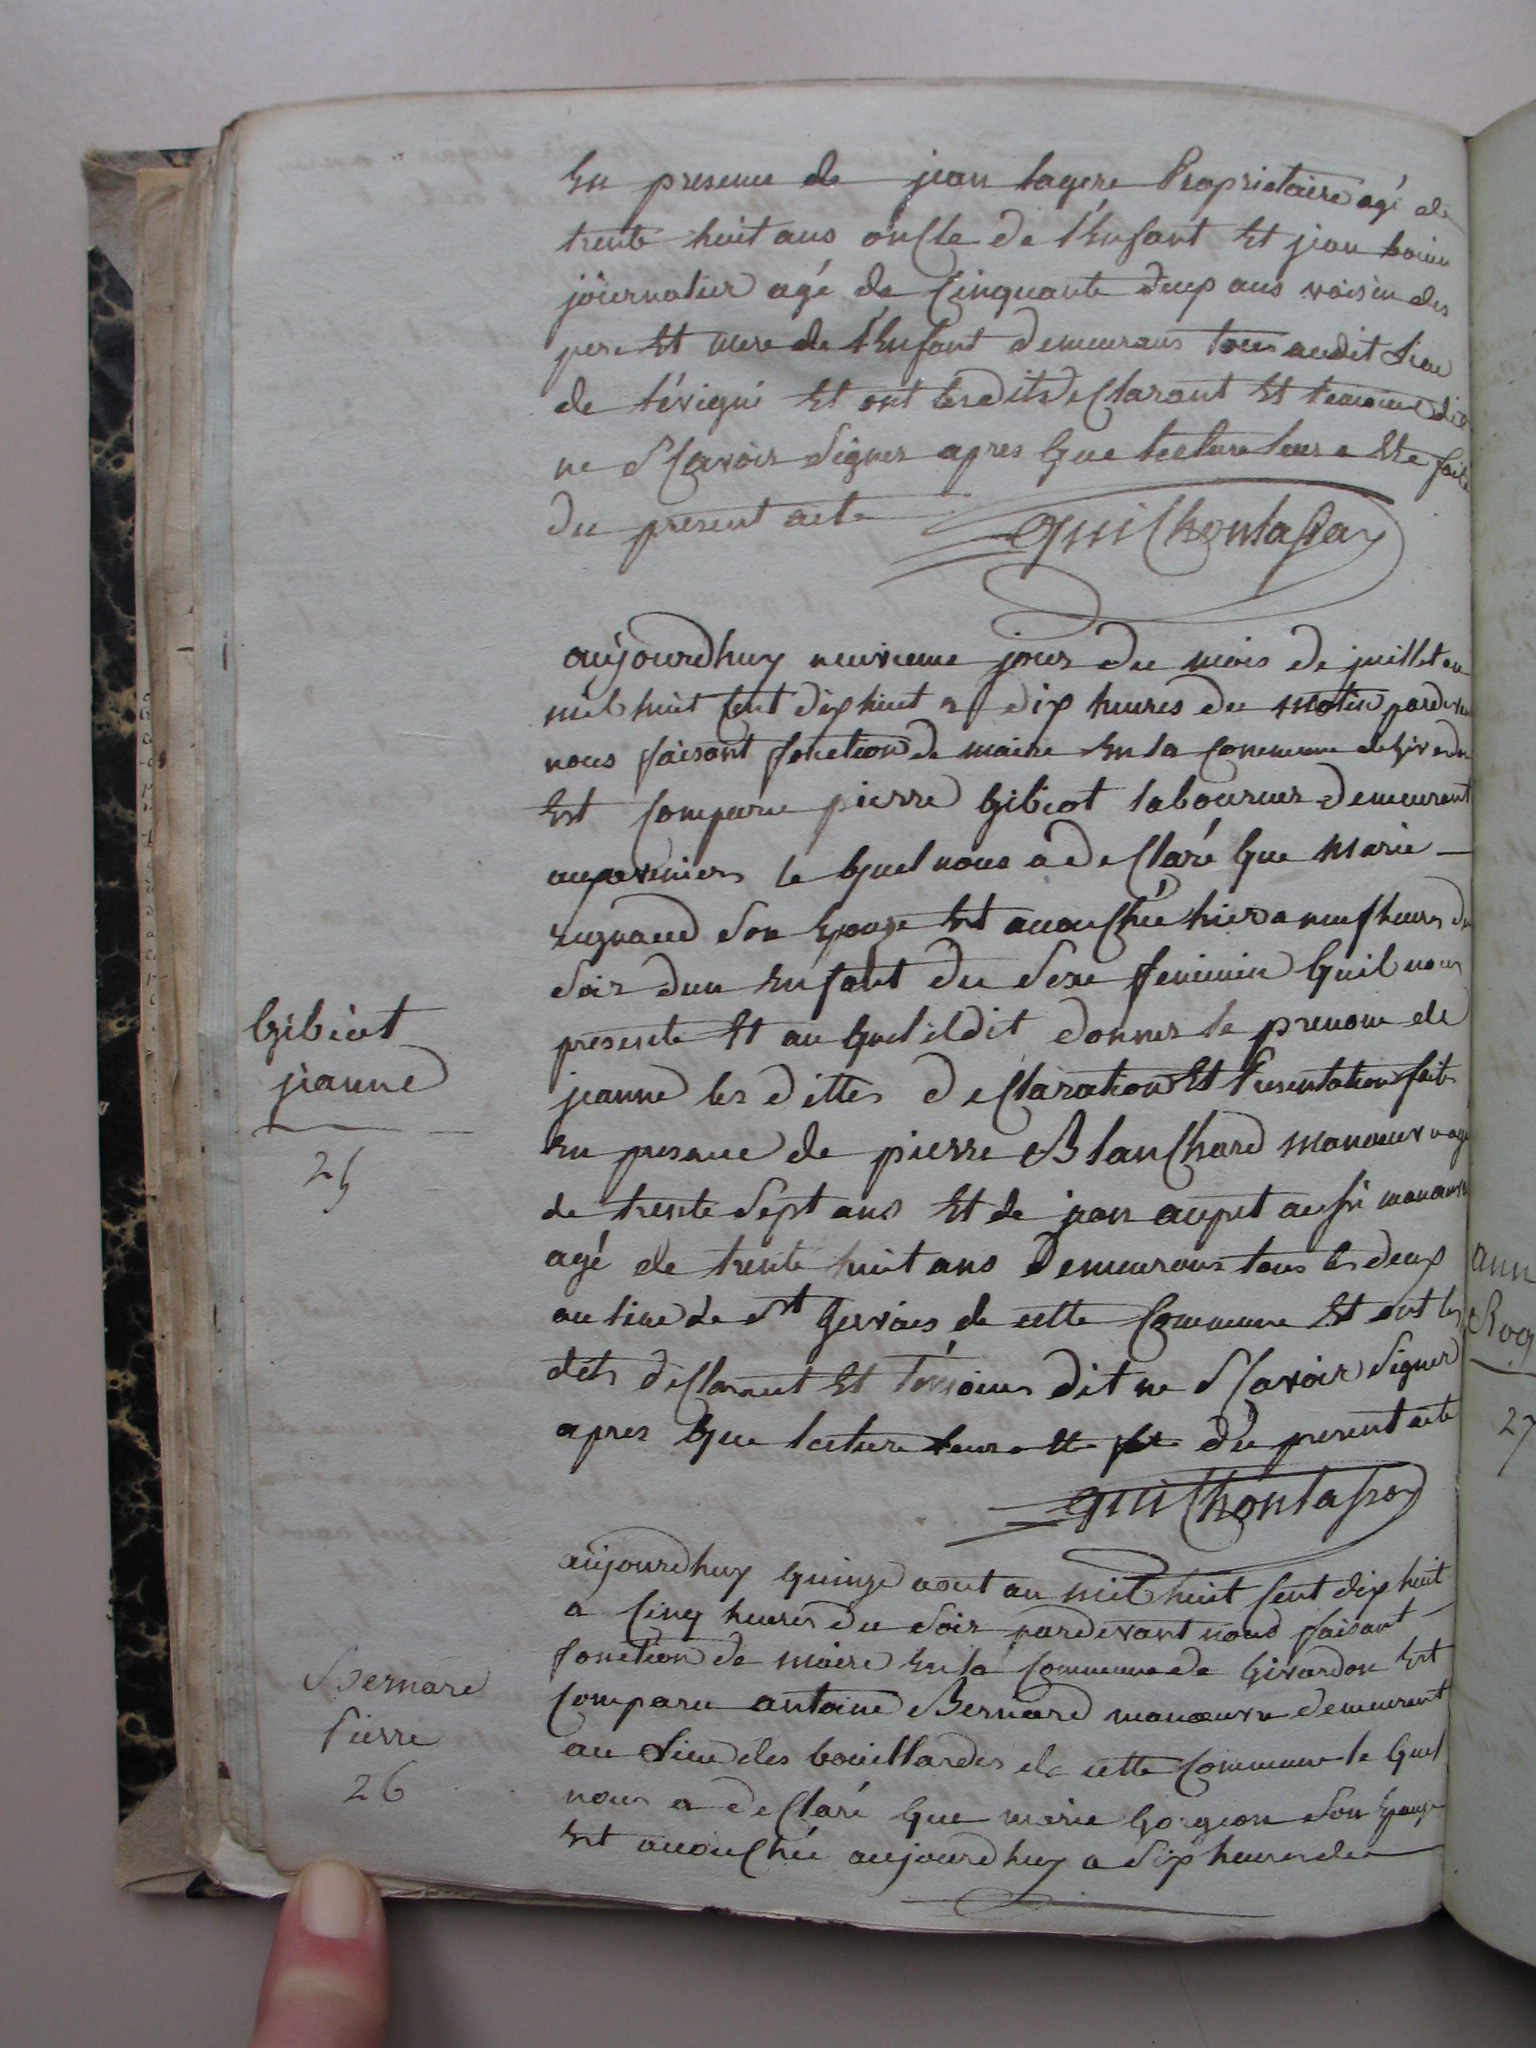 En presence de jean lagere Proprietaire agé de
trente huit ans oncle de l'Enfant Et jean
journalier agé de Cinquante deux ans voisin des
pere Et mere de l'Enfant demeurans tous audit lieu
de lévigni Et ont lesdits declarant Et temoins dit
ne Scavoir Signer apres que lecture leur a Ete faite
du present acte
Guichontassay
aujourdhuy neuvieme jour du mois de juillet an
mil huit Cent dix huit a dix heures du matin pardevan
nous faisant fonction de maire En la Commune de
Est Comparu pierre Gibiot laboureur demeurant
le quel nous a declaré que Marie
son Epouze Est accouchée hier a neuf heures du
Soir dun Enfant du Sexe feminin quil nous
presente Et au quel il dit donner le prenom de
Gibiot
jeanne
25
jeanne les dittes declaration Et Presentation faite
En presence de pierre Blanchard manoeuvre agé
de trente Sept ans Et de jean aussi manoeuvre
agé de trente huit ans demeurans tous les deux
au lieu de St Gervais de cette Commune Et ont les
dits declarant Et Temoins dit ne Scavoir Signer
apres que lecture leur a Ete fait du present acte
Guichontassay
aujourdhuy quinze aout an mil huit Cent dix huit
a Cinq heures du Soir pardevant nous faisant
fonction de maire En la Commune de Givardon Est
Bernard
Pierre
26
Comparu antoine Bernard manoeuvre demeurant
au Lieu des bouillardes de cette Commune le quel
nous a declaré que marie Gorgeon Son Epouze
Est accouchée aujourdhuy a Six heures du
ann
Rog
27